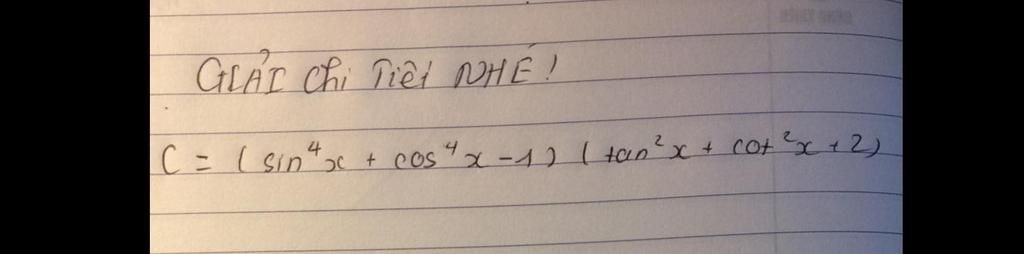 GIẢI Chi Tiết NHÉ!
C = (sin⁴x + cos⁴x - 1) (tan²x + cot²x + 2)